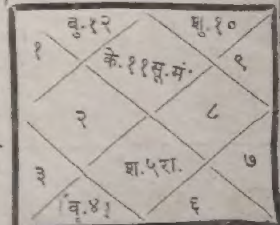 बु.१२ शु.१०
१ के.११सू.मं. ९
२ ८
३ श.५रा. ७
बृ.४ ६